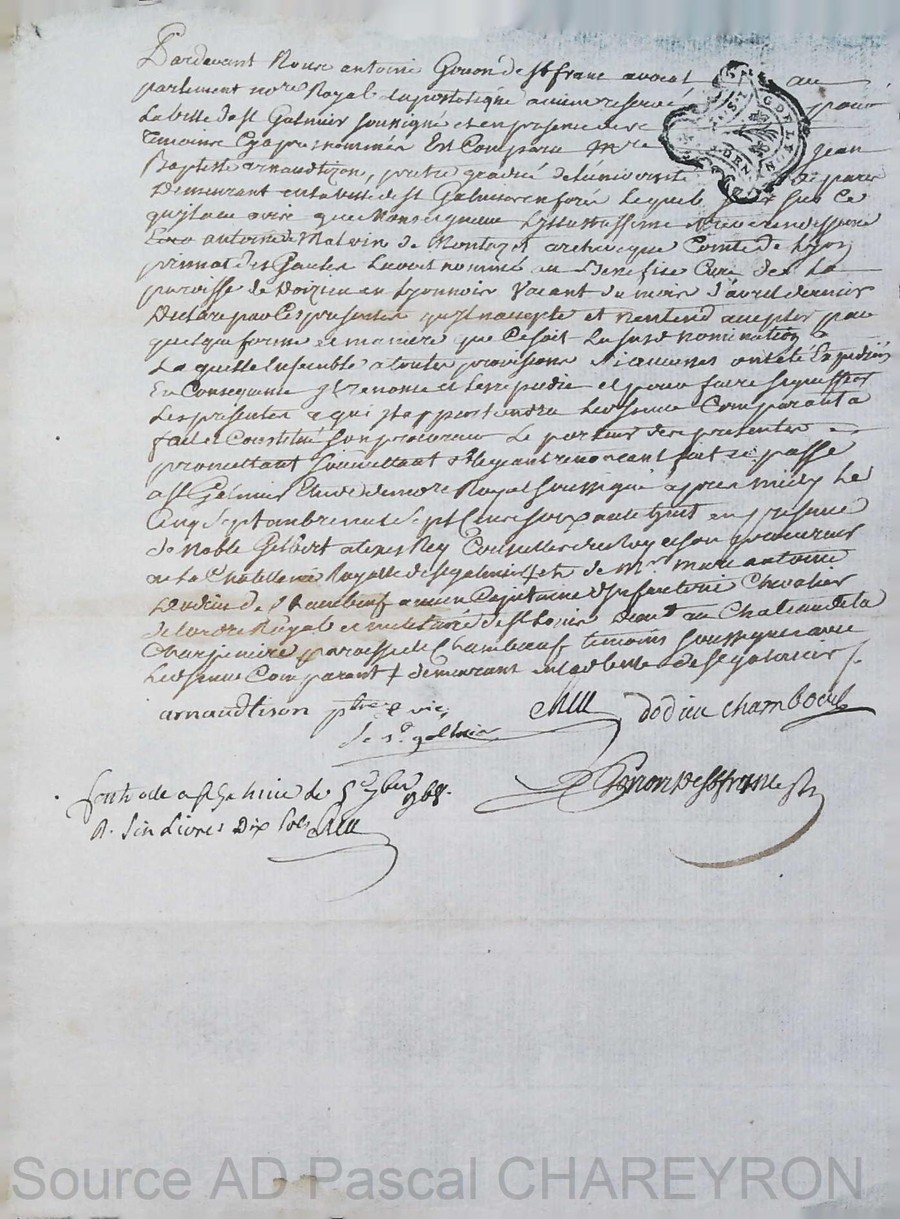 Pardevant Nous antoine Gonon de St franc avocat au
parlement no.re Royal apostolique a nien reservé pour
La ville de st Galmier soussigné et en presence de
Temoins Cy apres nommés Est Comparu m.re jean
Baptiste arnaudtizon, pretre gradué de Luniversité de paris
Demeurant en la ville de st Galmier en forés lequel sur ce
quil a eu avis que Monseigneur Lillustrissime et reverendissime
antoine de Malvin de Montazet archeveque Comte de Lyon
primat des Gaules Lavoit nommé au Benefice Cure de La
paroisse de Doizieu en Lyonnois Vacant du mois d'avril dernier
Declare par Ces presentes quil n'accepte et n'entend accepter par
quelque forme et maniere que Ce soit La susd. nomination
La quelle Ensemble a toutes provisions si aucunes ont eté Expediées
En Consequence Il renonce et les repudie et pour faire signiffier
Les presentes a qui Il appartiendra Led. sieur Comparant a
fait et Constitué son procureur Le porteur des presentes
promettant soumettant obligeant renoncant fait et passé
a st Galmier Etude de no.re Royal soussigné apres midy Le
Cinq septembre mil sept Cent soixante huit en presence
de Noble Gilbert alexis Rey Conseiller du Roy et son procureur
en La Chatellenie Royalle de st galmier + et de M.r marc antoine
Dodieu de Chambœuf ancien Capitaine d'Infanterie Chevalier
de Lordre Royal et militaire de st Louis Demt au Chateau de la
Charpiniere paroisse de Chambœuf temoins soussignés avec
Led. sieur Comparant + demeurant en lad. ville de st galmier
arnaudtison ptre & vic.
de st galmier
Rey
dodieu chamboeuf
Gonon De st franc
Controllé a st Galmier le 5e 7bre 1768.
R. six Livres Dix sols Rey
G. DE LYON
Source AD Pascal CHAREYRON